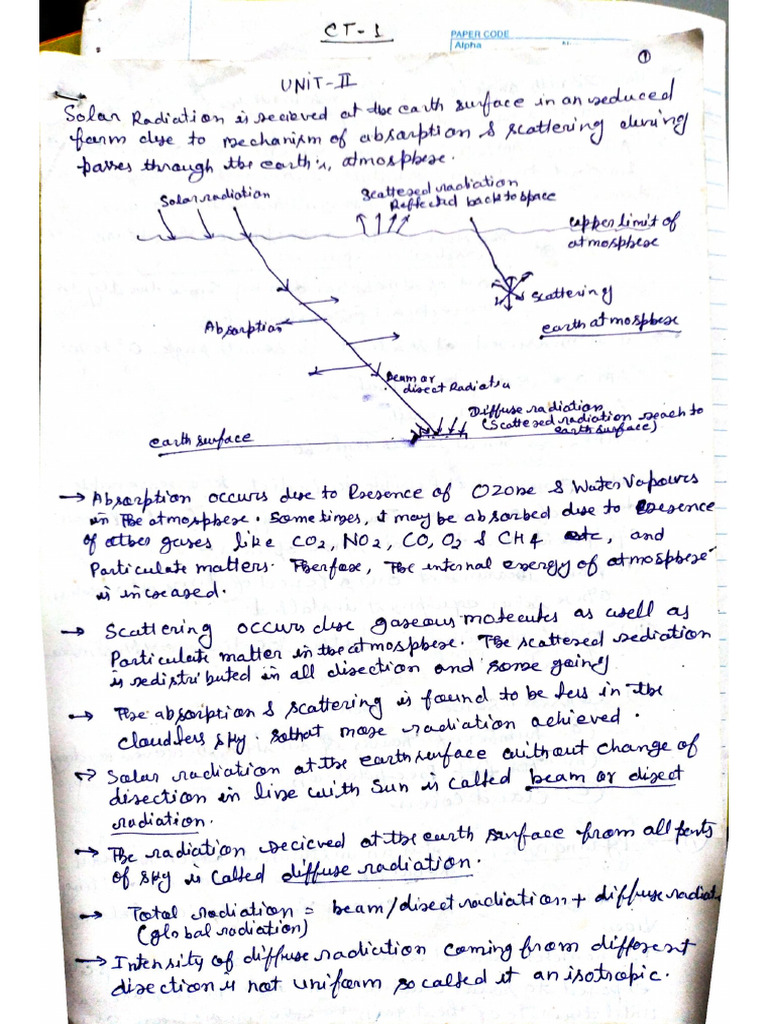 CT-1
PAPER CODE
Alpha
1
UNIT-II
Solar Radiation is recieved at the earth surface in an reduced
form due to mechanism of absorption & scattering during
passes through the earth's, atmosphere.
Solar radiation
Scattered radiation
Reflected back to space
upper limit of
atmosphere
Scattering
Absorption
earth atmosphere
Beam or
direct Radiation
Diffuse radiation
(Scattered radiation reach to
earth surface)
earth surface
→ Absorption occurs due to Presence of Ozone & Water Vapours
in the atmosphere. Sometimes, it may be absorbed due to Presence
of other gases like CO2, NO2, CO, O2 & CH4 etc, and
Particulate matters. Therfore, the internal energy of atmosphere
is increased.
→ Scattering occurs due gaseous molecules as well as
Particulate matter in the atmosphere. The scattered rediation
is redistributed in all direction and some going
→ The absorption & scattering is found to be less in the
cloudless sky. sothat more radiation achieved.
→ Solar radiation at the earth surface without change of
direction in line with Sun is called beam or direct
radiation.
→ The radiation recieved at the earth surface from all parts
of sky is called diffuse radiation.
→ Total radiation = beam/direct radiation + diffuse radiati
(global radiation)
→ Intensity of diffuse radiation coming from different
direction is not uniform so called it anisotropic.